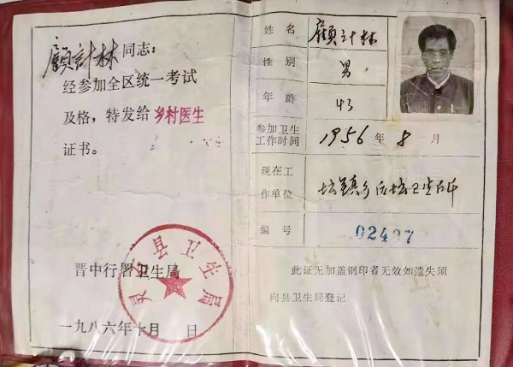 顧計林同志：
经参加全区统一考试
及格，特发给乡村医生
证书。
县卫生局
晋中行署卫生局
一九八六年十月 日
姓名 顧計林
性别 男
年龄 43
参加卫生工作时间 1956年8月
现在工作单位 坛镇乡 卫生所
编号 02497
此证无加盖钢印者无效如遗失须
向县卫生局登记